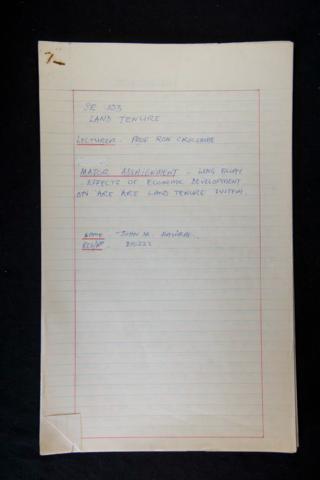 SE 303
LAND TENURE
LECTURER - PROF RON CROCOMBE
MAJOR ASSIGNMENT - LONG ESSAY
EFFECTS OF ECONOMIC DEVELOPMENT
ON 'ARE 'ARE LAND TENURE SYSTEM.
NAME - JOHN M.